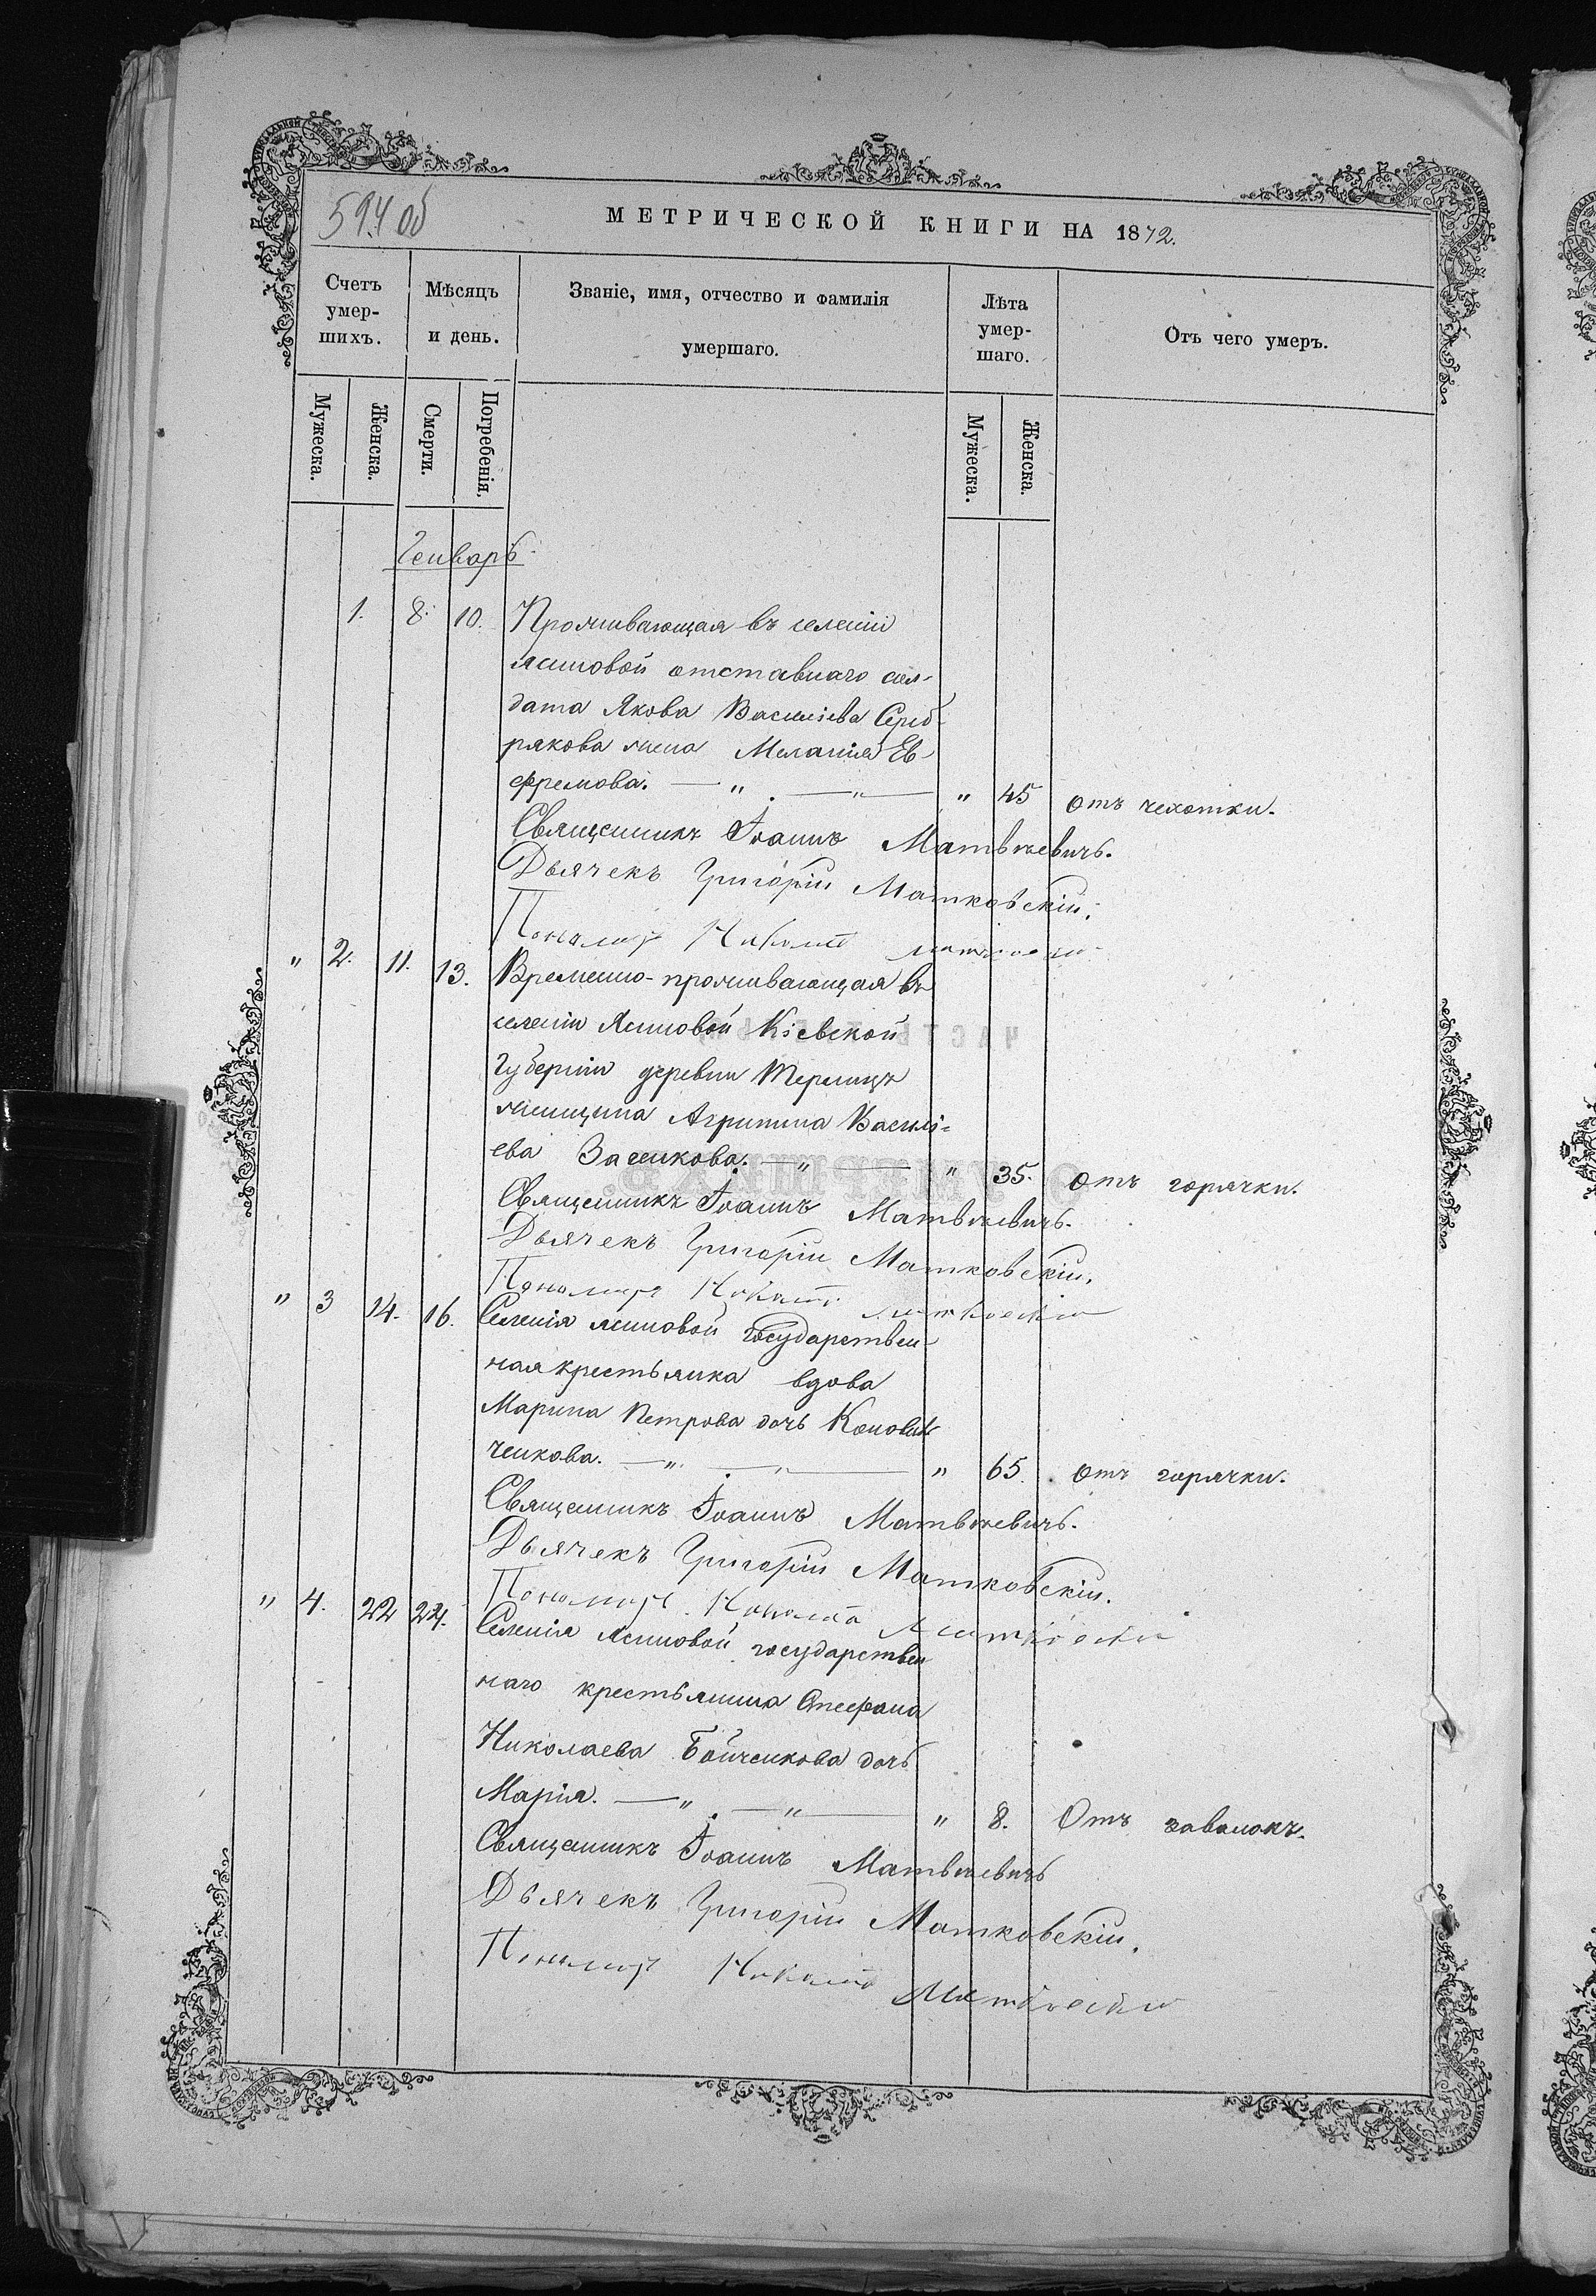 594 об
МЕТРИЧЕСКОЙ КНИГИ НА 1872.
Счетъ умер-шихъ.
Мѣсяцъ и день.
Званіе, имя, отчество и фамилія умершаго.
Лѣта умер-шаго.
Отъ чего умеръ.
Мужеска. Женска. Смерти. Погребенія. Мужеска. Женска.
Генварь
1. 8. 10. Проживающая въ селеніи
Ясиновой отставнаго сол-
дата Якова Василіева Сереб-
рякова жена Меланія Ев-
фремова. — „ . — „ — „ 45 отъ чехотки.
Священникъ Іоаннъ Матвѣевичъ.
Дьячекъ Григорій Матковскій.
Пономарь
„ 2. 11. 13. Временно-проживающая въ
селеніи Ясиновой Кіевской
Губерніи деревни
женщина Агрипина Василі-
ева — „ — „ 35. отъ горячки.
Священникъ Іоаннъ Матвѣевичъ.
Дьячекъ Григорій Матковскій.
Пономарь
„ 3 14. 16. Селенія Ясиновой государствен-
ная крестьянка вдова
Марина Петрова дочь Коноваль
ченкова. — „ . — „ — „ 65. отъ горячки.
Священникъ Іоаннъ Матвѣевичъ.
Дьячекъ Григорій Матковскій.
Пономарь
„ 4. 22 24. Селенія Ясиновой государствен
наго крестьянина Стефана
Николаева Бойченкова дочь
Марія. — „ . — „ — „ 8. Отъ завалокъ.
Священникъ Іоаннъ Матвѣевичъ
Дьячекъ Григорій Матковскій.
Пономарь